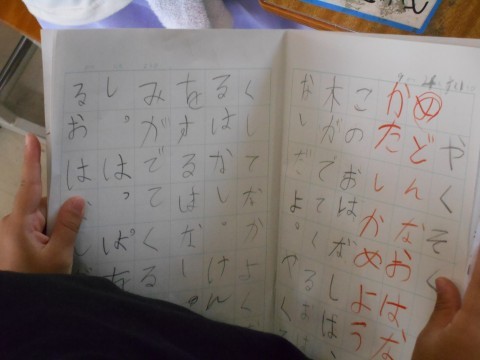 やくそく
めどんなおはな
かたしかめよう
このおはなしは
木がでてくる
くしてなかよ
けん
をするはなし
みがでてくる
し。はっぱを
るおはなし